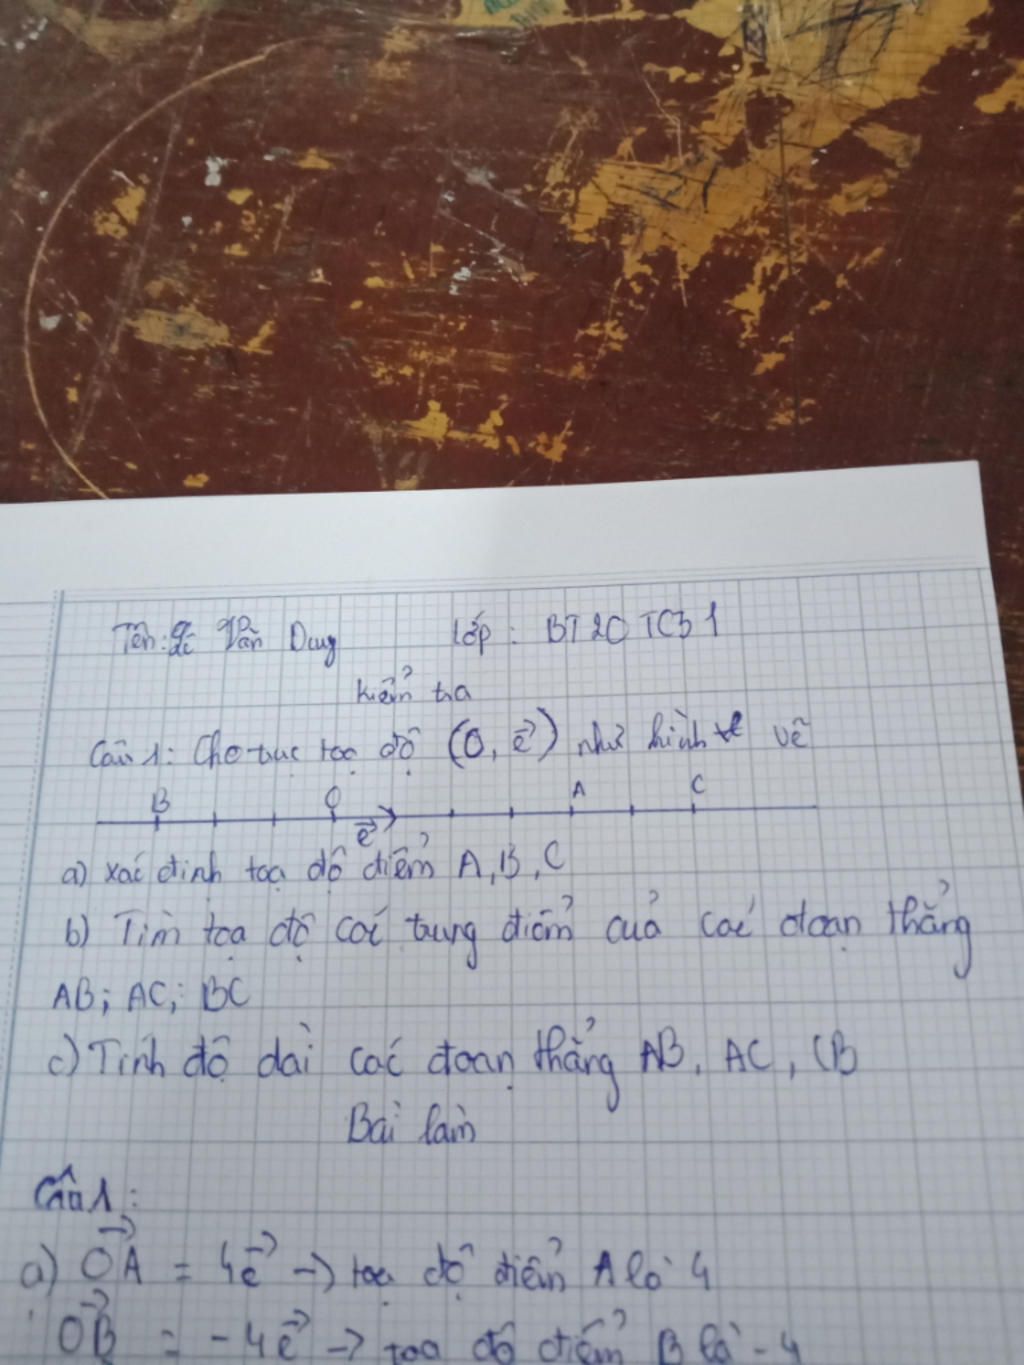 Tên: Lê Văn Dung lớp : BT20TCB1
kiểm tra
Câu 1: Cho trục toạ độ (O, e⃗) như hình vẽ
B O A C
e⃗
a) xác định toạ độ điểm A, B, C
b) Tìm tọa độ các trung điểm của các đoạn thẳng
AB; AC; BC
c) Tính độ dài các đoạn thẳng AB, AC, CB
Bài làm
Câu 1:
a) OA⃗ = 4e⃗ -> toạ độ điểm A là 4
OB⃗ = -4e⃗ -> toạ độ điểm B là -4